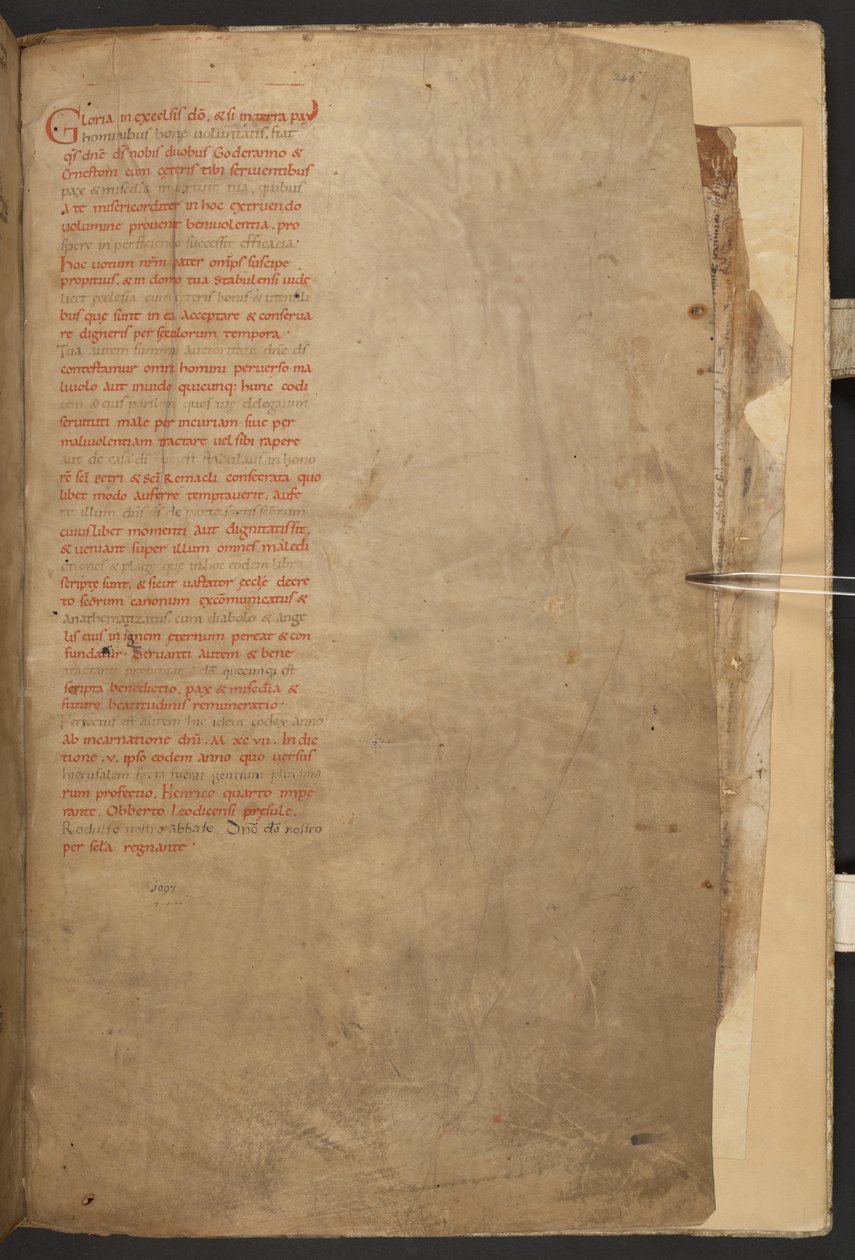 240
Gloria in excelsis dō. & si in terra pax
hominibus bonę uoluntatis. fiat
qs̄ dnē ds̄ nobis duobus Goderanno &
Ernestoni cum cęteris tibi seruientibus
pax & miscd̄ia in uirtute tua, quibus
a te misericorditer in hoc extruendo
uolumine prouenit beniuolentia. pro
spere in perficiendo successit efficacia.
Hoc uotum nr̄m pater omp̄s suscipe
propitius. & in domo tua Stabulensi uide
licet ęcclesia cum cęteris bonis & utensili
bus quę sunt in ea acceptare & conserua
re digneris per sęculorum tempora.
Tua autem summa auctoritate dnē ds̄
contestamur omni homini peruerso ma
liuolo aut inuido quicunq: hunc codi
cem & eius parilem quos tuę delegauim
seruituti male per incuriam siue per
maliuolentiam tractare uel sibi rapere
aut de casa di que est stabulaus in hono
rē scī Petri & Scī Remacli consecrata quo
libet modo auferre temptauerit. Aufe
rat illum dns̄ ds̄ de parte sortis scōrum
cuiuslibet momenti aut dignitatis sit.
& ueniant super illum omnes maledi
ctiones & plagę quę in hoc eodem libro
scriptę sunt. & sicut uastator ęcclę decre
to scōrum canonum excōmunicatus &
anathematizatus. cum diabolo & ange
lis eius in ignem ęternum pereat & con
fundatur. Seruanti autem & bene
tractanti quecunq; est
scripta benedictio. pax & miscd̄ia &
futurę beatitudinis remuneratio.
Perfectus est autem hic idem codex anno
ab incarnatione dnī. M. xc vii. Indic
tione. v. ipso eodem anno quo uersus
hierusalem facta fuerat gentium plurima
rum profectio. Henrico quarto impe
rante. Obberto Leodicensi pręsule.
Rodulfo nostro abbate. Dnō dō nostro
per scl̄a regnante.
1097